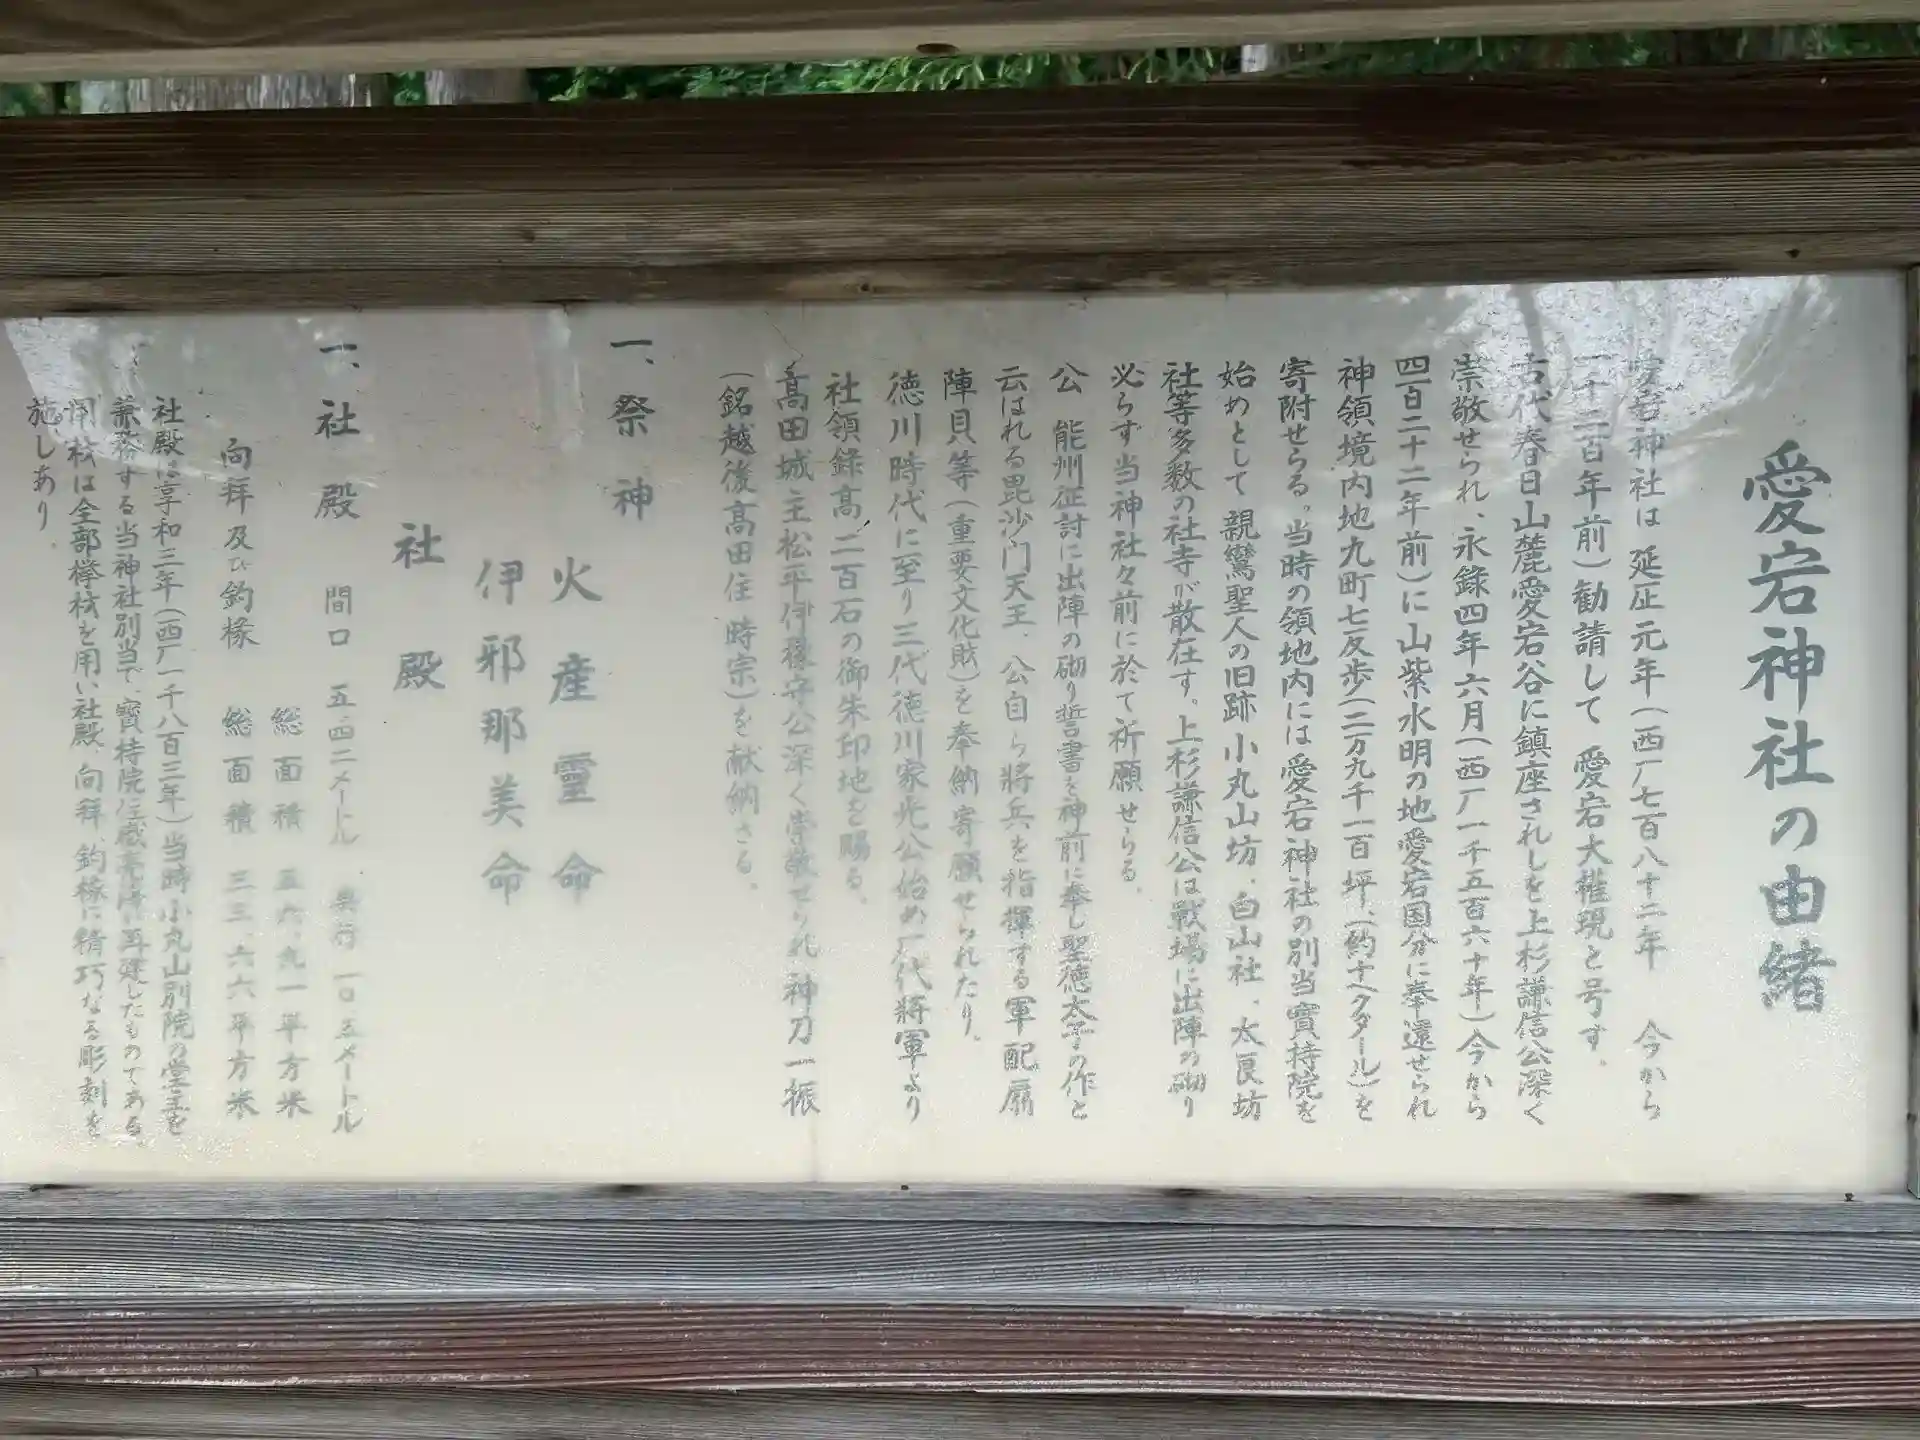 愛宕神社の由緒
愛宕神社は延圧元年(西厂七百八十二年 今から
一千二百年前)勧請して愛宕大権現と号す。
古代春日山麓愛宕谷に鎮座されしを上杉謙信公深く
崇敬せられ、永録四年六月(西厂一千五百六十年)今から
四百二十二年前)に山紫水明の地愛宕国分に奉還せられ
神領境内地九町七反歩(二万九千一百坪、(約十ヘクタール)を
寄附せらる。当時の領地内には愛宕神社の別当寳持院を
始めとして親鸞聖人の旧跡小丸山坊、白山社、太良坊
社等多数の社寺が散在す。上杉謙信公は戦場に出陣の砌り
必らず当神社々前に於て祈願せらる。
公 能州征討に出陣の砌り誓書を神前に奉し聖徳太子の作と
云はれる毘沙门天王、公自ら將兵を指揮する軍配扇
陣貝等(重要文化財)を奉納寄願せられたり。
徳川時代に至り三代徳川家光公始め代代將軍より
社領録高、二百石の御朱印地を賜る。
髙田城主松平伊豫守公深く崇敬せられ神刀一振
(銘越後髙田住 時宗)を献納さる。
一、祭神
火産霊命
伊邪那美命
社殿
一、社殿 間口 五.四二メートル 奥行 一〇.五メートル
総面積 五六.九一平方米
向拝及び釣椽 総面積 三三.六六平方米
社殿は享和三年(西厂一千八百三年)当時小丸山別院の堂主を
兼務する当神社別当で、寳持院住職 再建したものである。
用材は全部欅材を用い社殿、向拝、釣椽に精巧なる彫刻を
施しあり.